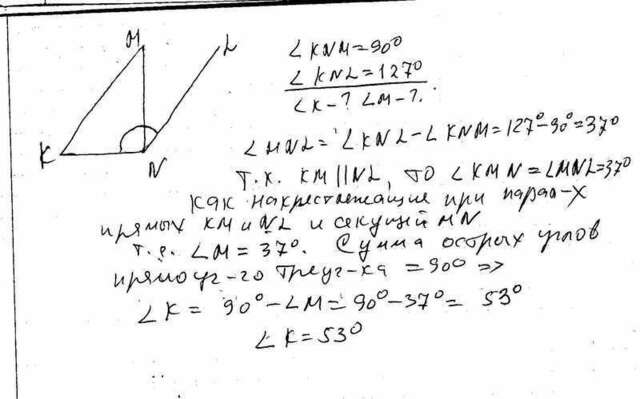 M L
K N
∠KNM=90°
∠KNL=127°
∠K-? ∠M-?.
∠MNL=∠KNL-∠KNM=127°-90°=37°
т.к. KM||NL, то ∠KMN=∠MNL=37°
как накрестлежащие при парал-х
прямых KM и NL и секущей MN
т.е. ∠M=37°. Сумма острых углов
прямоуг-го треуг-ка =90° =>
∠K= 90°-∠M=90°-37°= 53°
∠K=53°